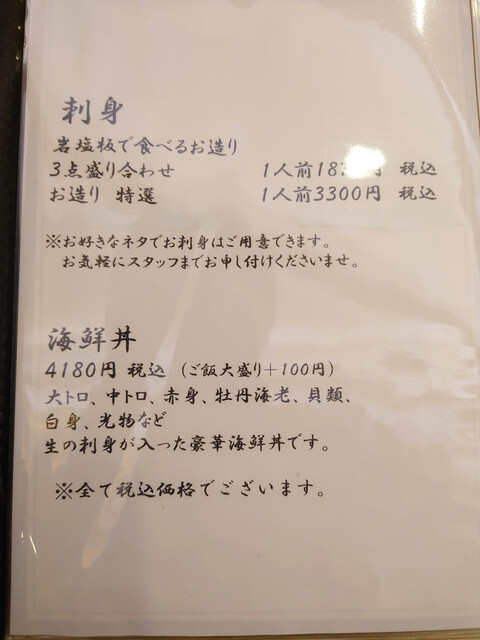 刺身
岩塩板で食べるお造り
3点盛り合わせ 1人前18 円 税込
お造り 特選 1人前3300円 税込
※お好きなネタでお刺身はご用意できます。
お気軽にスタッフまでお申し付けくださいませ。
海鮮丼
4180円 税込 (ご飯大盛り+100円)
大トロ、中トロ、赤身、牡丹海老、貝類、
白身、光物など
生の刺身が入った豪華海鮮丼です。
※全て税込価格でございます。